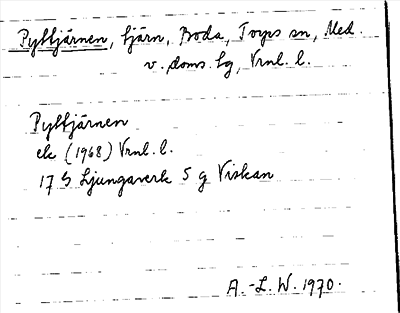 Pyttjärnen, tjärn, Boda, Torps sn, Med.
v. doms. lg, Vrnl. l.
Pyttjärnen
ek (1968) Vrnl. l.
17 G Ljungaverk 5 g Viskan
A.-L. W. 1970.